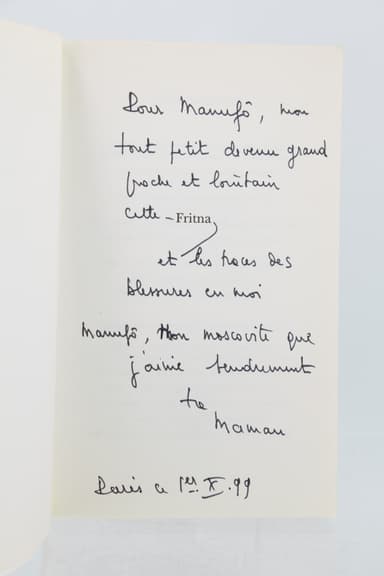 Pour Manufô, mon
tout petit devenu grand
proche et lointain
cette – Fritna
et les traces des
blessures en moi
Manufô, mon moscovite que
j'aime tendrement
ta
Maman
Paris ce 1er X. 99